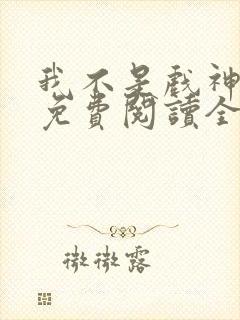 我不是戲神
免費閱讀全
微微露